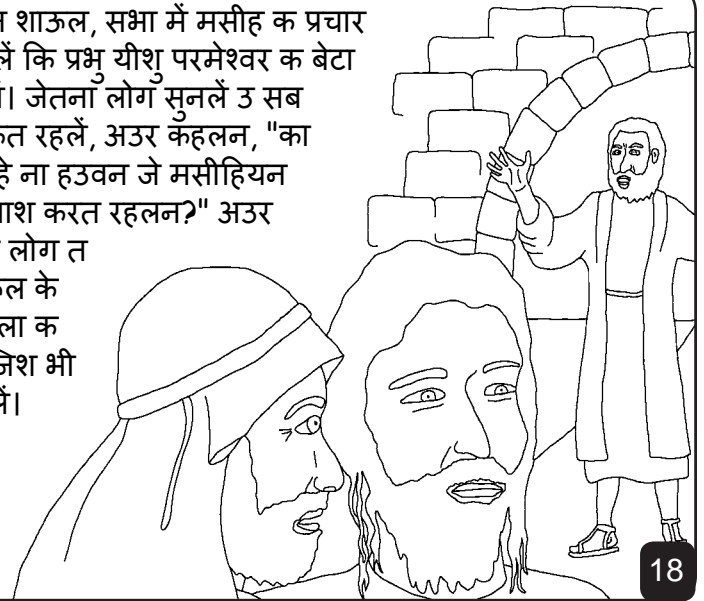 शाऊल, सभा में मसीह क प्रचार
कि प्रभु यीशु परमेश्वर क बेटा
जेतना लोग सुनलें उ सब
रहलें, अउर कहलन, "का
ना हउवन जे मसीहियन
करत रहलन?" अउर
लोग त
के
क
भी
18